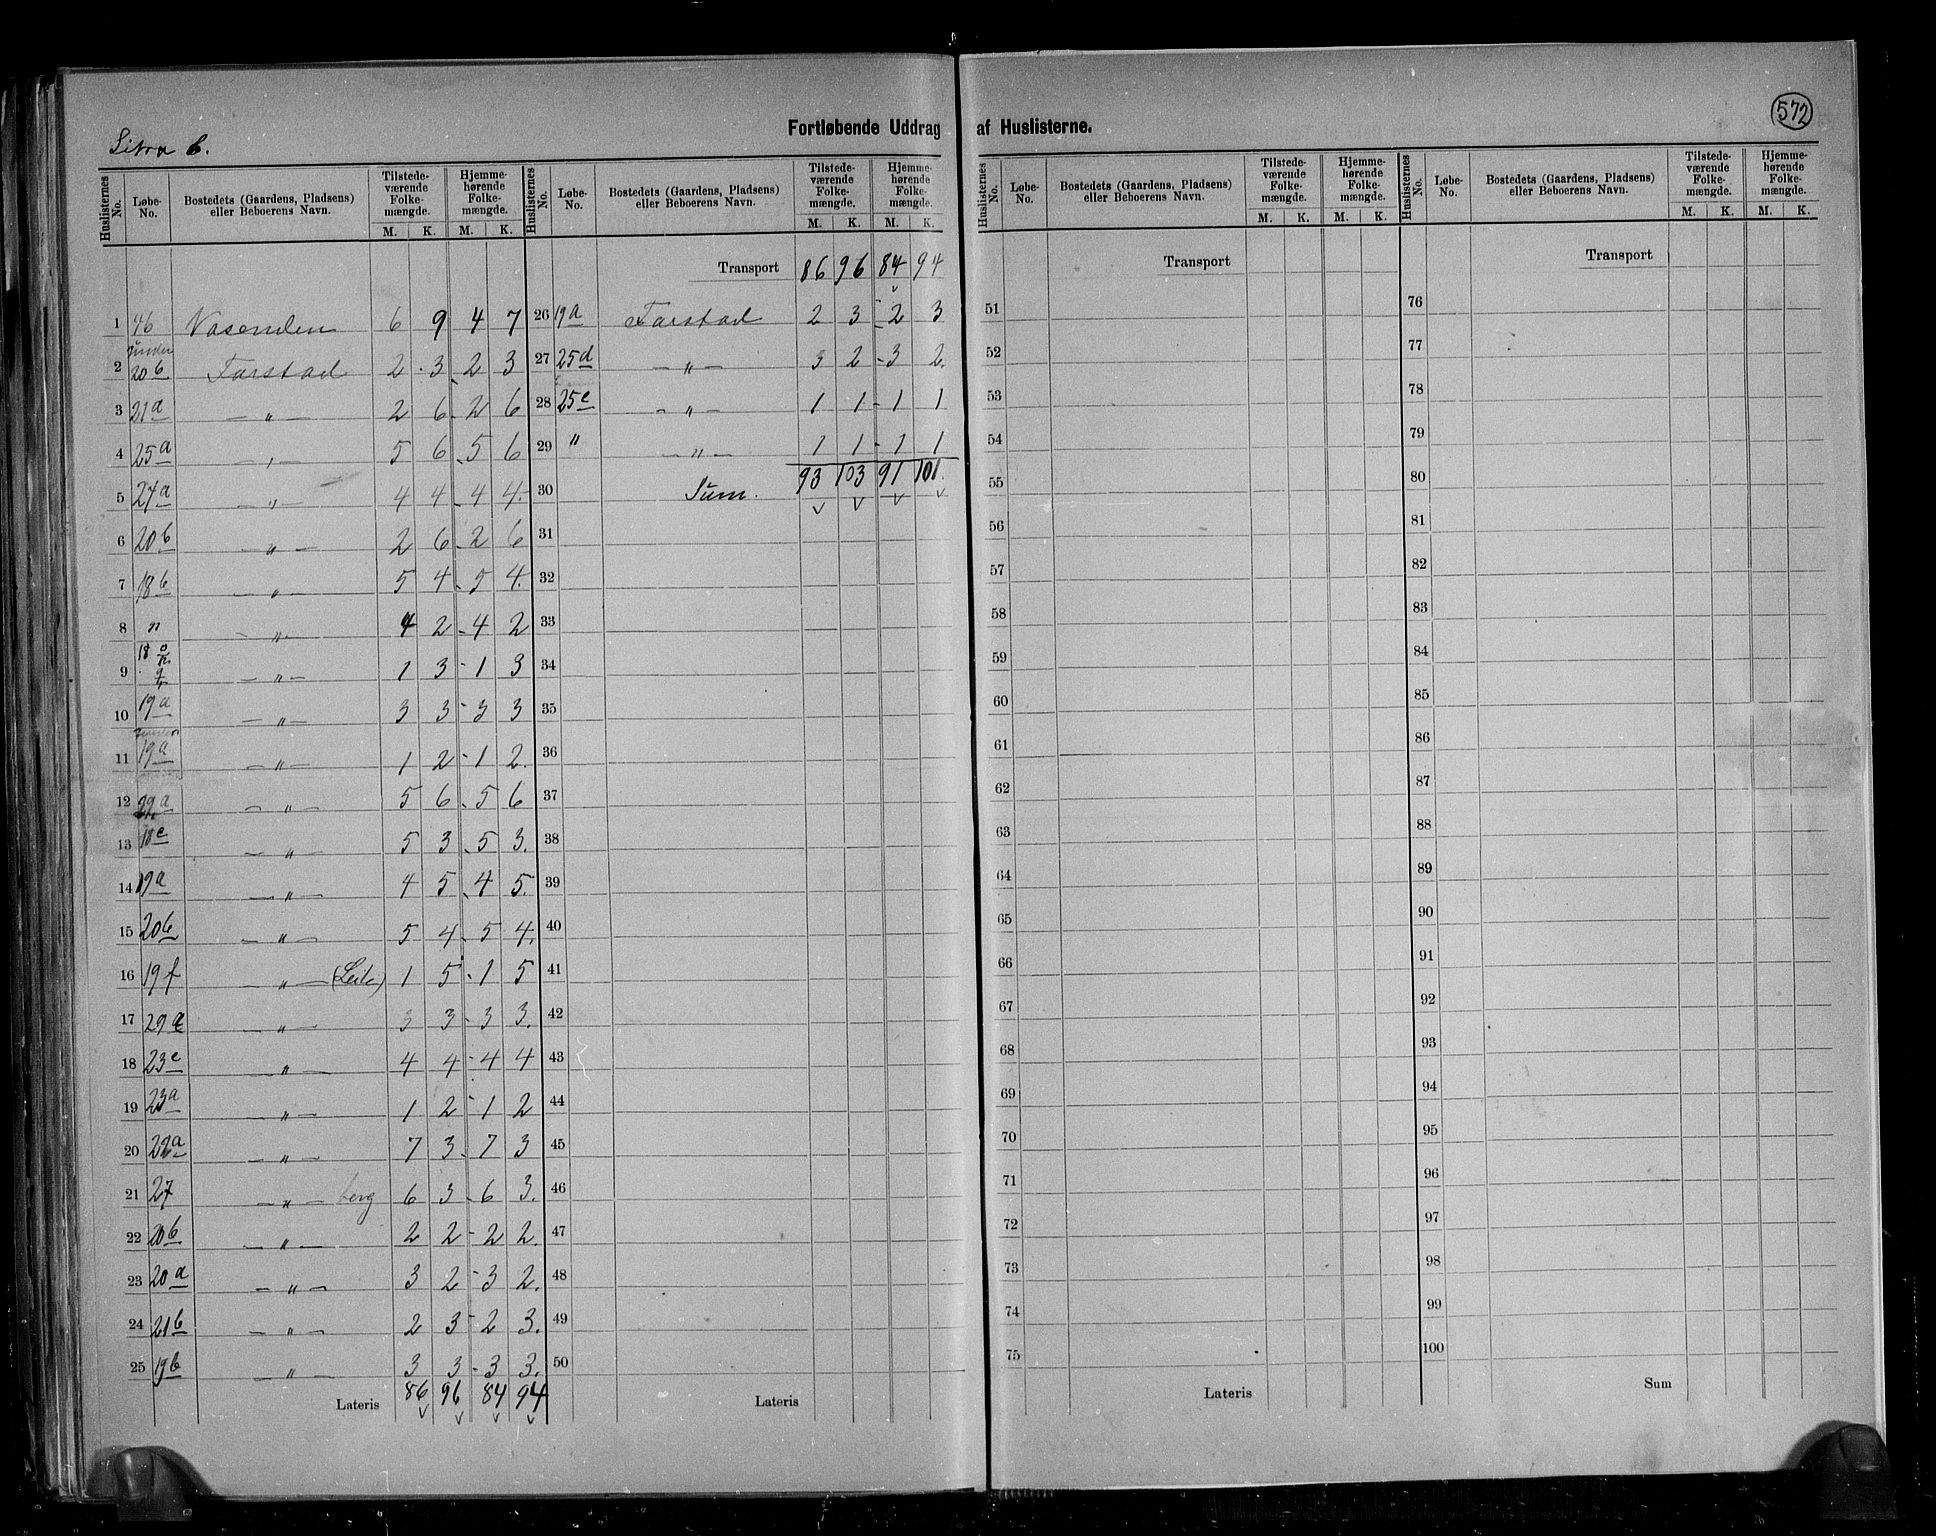 572
Fortløbende Uddrag af Huslisterne.
Litra C.
Huslisternes No. Løbe-No. Bostedets (Gaardens, Pladsens) eller Beboerens Navn. Tilstedeværende Folkemængde. M. K. Hjemmehørende Folkemængde. M. K.
1 46 Vasenden 6 9 4 7
2 under 20 b Farstad 2 3 2 3
3 21 a — „ — 2 6 2 6
4 25 a — „ — 5 6 5 6
5 27 a — „ — 4 4 4 4.
6 20 b — „ — 2 6 2 6
7 18 b — „ — 5 4 5 4.
8 " — „ — 4 2 4 2
9 18 — „ — 1 3 1 3
10 19 a — „ — 3 3 3 3
11 19 a — „ — 1 2 1 2.
12 — „ — 5 6 5 6
13 18 e — „ — 5 3 5 3.
14 19 a — „ — 4 5 4 5.
15 20 b — „ — 5 4 5 4.
16 19 f — „ — 1 5 1 5
17 29 a — „ — 3 3 3 3.
18 23 c — „ — 4 4 4 4
19 23 a — „ — 1 2 1 2
20 22 a — „ — 7 3 7 3
21 27 — „ — 6 3 6 3.
22 20 b — „ — 2 2 2 2.
23 20 a — „ — 3 2 3 2.
24 21 b — „ — 2 3 2 3.
25 19 b — „ — 3 3 3 3.
Lateris 86 96 84 94
Huslisternes No. Løbe-No. Bostedets (Gaardens, Pladsens) eller Beboerens Navn. Tilstedeværende Folkemængde. M. K. Hjemmehørende Folkemængde. M. K.
Transport 86 96 84 94
26 19 a Farstad 2 3 2 3
27 25 d — „ — 3 2 3 2.
28 25 e — „ — 1 1 1 1
29 " — „ — 1 1 1 1
30 Sum. 93 103 91 101.
31
32
33
34
35
36
37
38
39
40
41
42
43
44
45
46
47
48
49
50
Lateris
Huslisternes No. Løbe-No. Bostedets (Gaardens, Pladsens) eller Beboerens Navn. Tilstedeværende Folkemængde. M. K. Hjemmehørende Folkemængde. M. K.
Transport
51
52
53
54
55
56
57
58
59
60
61
62
63
64
65
66
67
68
69
70
71
72
73
74
75
Lateris
Huslisternes No. Løbe-No. Bostedets (Gaardens, Pladsens) eller Beboerens Navn. Tilstedeværende Folkemængde. M. K. Hjemmehørende Folkemængde. M. K.
Transport
76
77
78
79
80
81
82
83
84
85
86
87
88
89
90
91
92
93
94
95
96
97
98
99
100
Sum